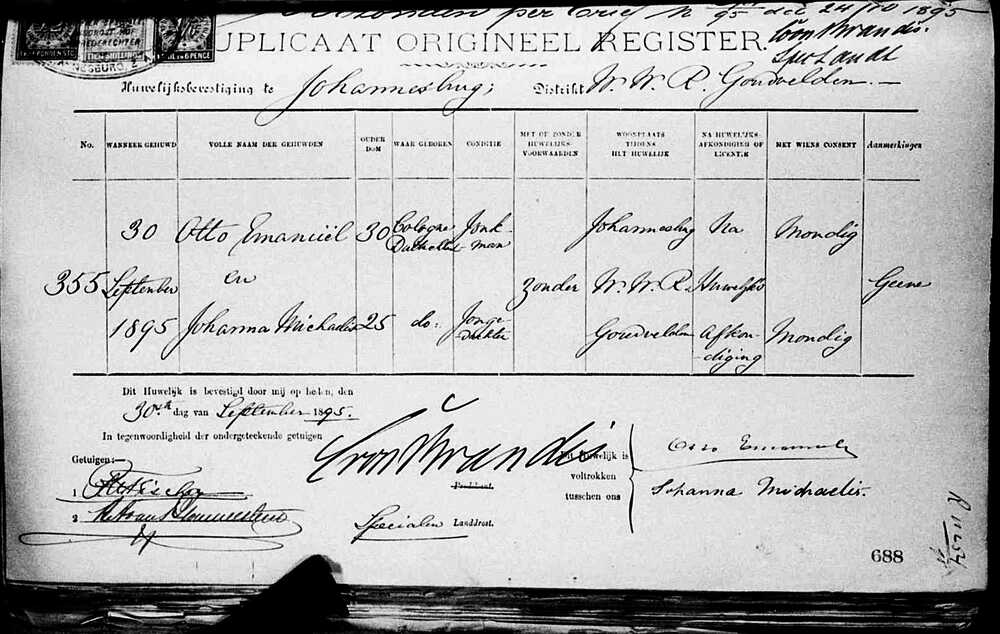 per brief N 95 dd 24/10 1895
DUPLICAAT ORIGINEEL REGISTER.
Huwelijksbevestiging te Johannesburg; Distrikt W. W. R. Goudvelden.
No. WANNEER GEHUWD VOLLE NAAM DER GEHUWDEN OUDERDOM WAAR GEBOREN CONDITIE MET OF ZONDER HUWELIJKS-VOORWAARDEN WOONPLAATS TIJDENS HET HUWELIJK NA HUWELIJKS-AFKONDIGING OF LICENTIE MET WIENS CONSENT Aanmerkingen
30 Otto Emanuël 30 Cologne Jonk-man Johannesburg Na Mondig
355 September en zonder W. W. R. Huwelijks Geene
1895 Johanna Michaelis 25 do: Jonge-dochter Goudvelden Afkon-diging Mondig
Dit Huwelijk is bevestigd door mij op heden, den
30ste dag van September 1895.
In tegenwoordigheid der ondergeteekende getuigen
Getuigen:—
1
2
von Brandis
Predikant.
Specialen Landdrost.
Dit Huwelijk is
voltrokken
tusschen ons
Otto Emanuel
Johanna Michaelis.
688